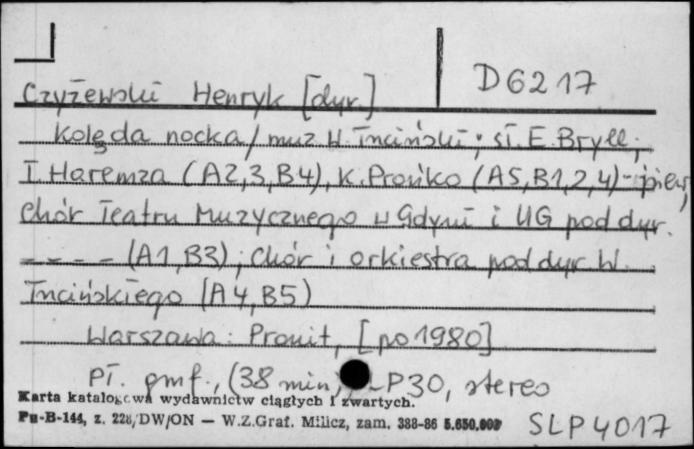 D6217
Czyżewski Henryk [dyr.]
Kolęda nocka / muz. W. Trzciński; sł. E. Bryll;
T. Haremza (A2,3,B4), K. Prońko (A5,B1,2,4) - śpiew,
Chór Teatru Muzycznego w Gdyni i UG pod dyr.
---- (A1,B3); Chór i orkiestra pod dyr. W.
Trzcińskiego (A4,B5)
Warszawa: Pronit, [po 1980]
Pł. gmf., (38 min) LP30, stereo
Karta katalogowa wydawnictw ciągłych i zwartych.
Pu-B-144, z. 228/DW/ON — W.Z.Graf. Milicz, zam. 388-86 5.650.000
SLP 4017